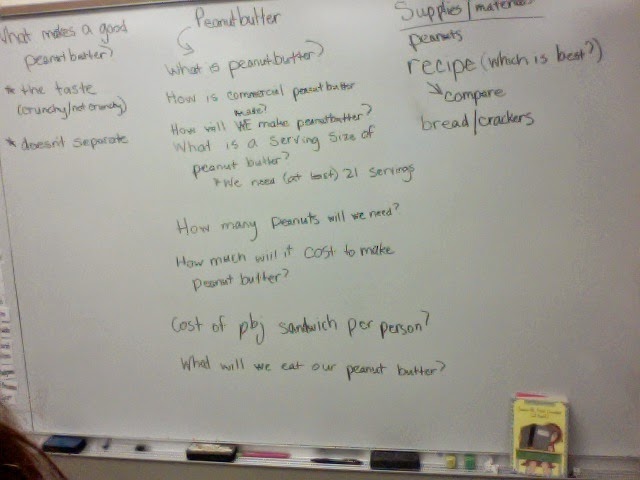 What makes a good
peanut butter?
* the taste
(crunchy/not crunchy)
* doesn't separate
Peanutbutter
What is peanutbutter?
How is commercial peanut butter
make?
How will WE make peanutbutter?
What is a serving size of
peanut butter?
* We need (at least) 21 servings
How many peanuts will we need?
How much will it cost to make
peanut butter?
Cost of pbj sandwich per person?
What will we eat our peanut butter?
Supplies/materials
peanuts
recipe (which is best?)
compare
bread/crackers